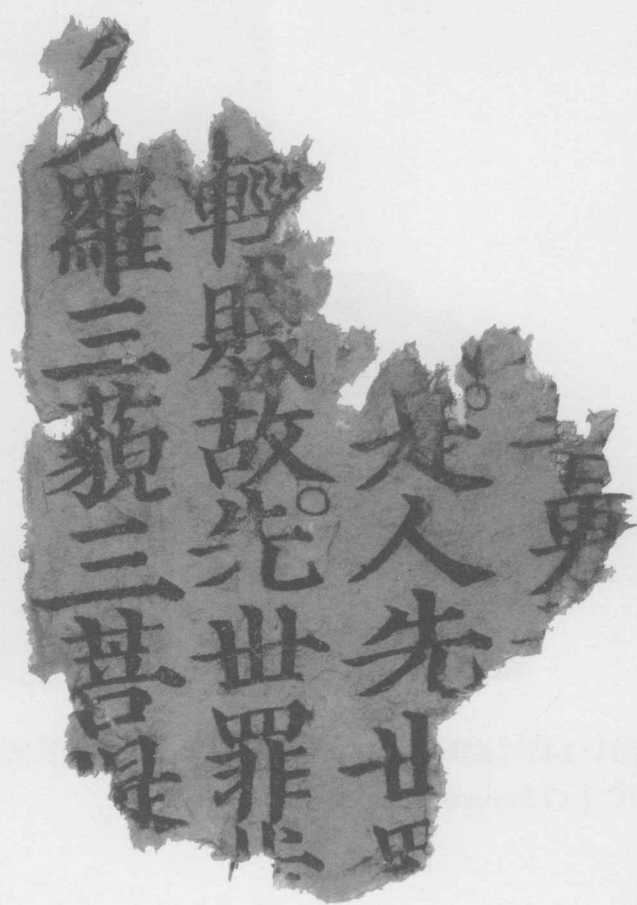 善男
。是人先世罪
輕賤故。先世罪業
多羅三藐三菩提